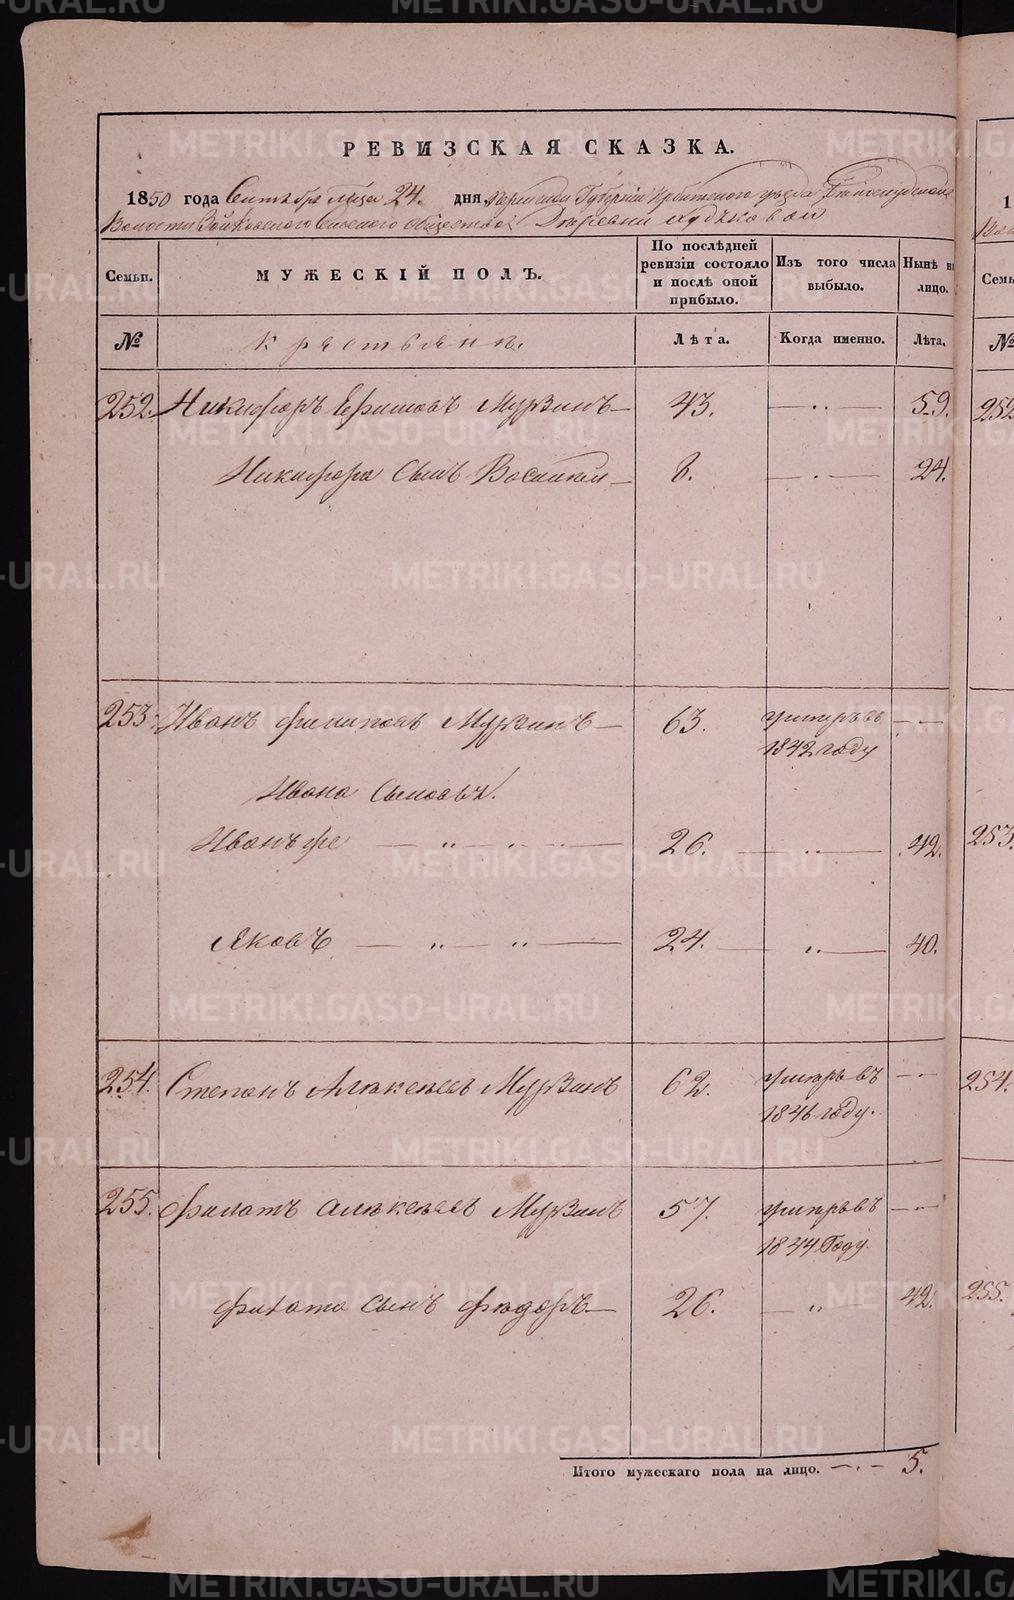 РЕВИЗСКАЯ СКАЗКА.
1850 года Сентября м-ца 24. дня, Пермской Губернии Ирбитского уезда Белослудской
Волости Зайковского Сельского общества Деревни Худяковой
Семьи.
МУЖЕСКІЙ ПОЛЪ.
По послѣдней ревизіи состояло и послѣ оной прибыло.
Изъ того числа выбыло.
Нынѣ на лицо.
№
крестьянъ.
Лѣта.
Когда именно.
Лѣта.
252. Никифоръ Ефимовъ Мурзинъ 43. — „ — 59. 252
Никифора Сынъ Василий 8. — „ — 24.
253 Иванъ Филиповъ Мурзинъ 63. умеръ въ
1842 году
Ивана Сыновья.
Иванъ же — „ — „ — 26. — „ — 42. 253.
Яковъ — „ — „ — 24. — „ — 40.
254. Степанъ Алексѣевъ Мурзинъ 62. умеръ въ 254.
1846 году.
255. Филатъ Алексѣевъ Мурзинъ 57. умеръ въ
1844 Году.
Филата сынъ Федоръ 26. — „ — 42. 255.
Итого мужескаго пола на лицо. 5.
METRIKI.GASO-URAL.RU